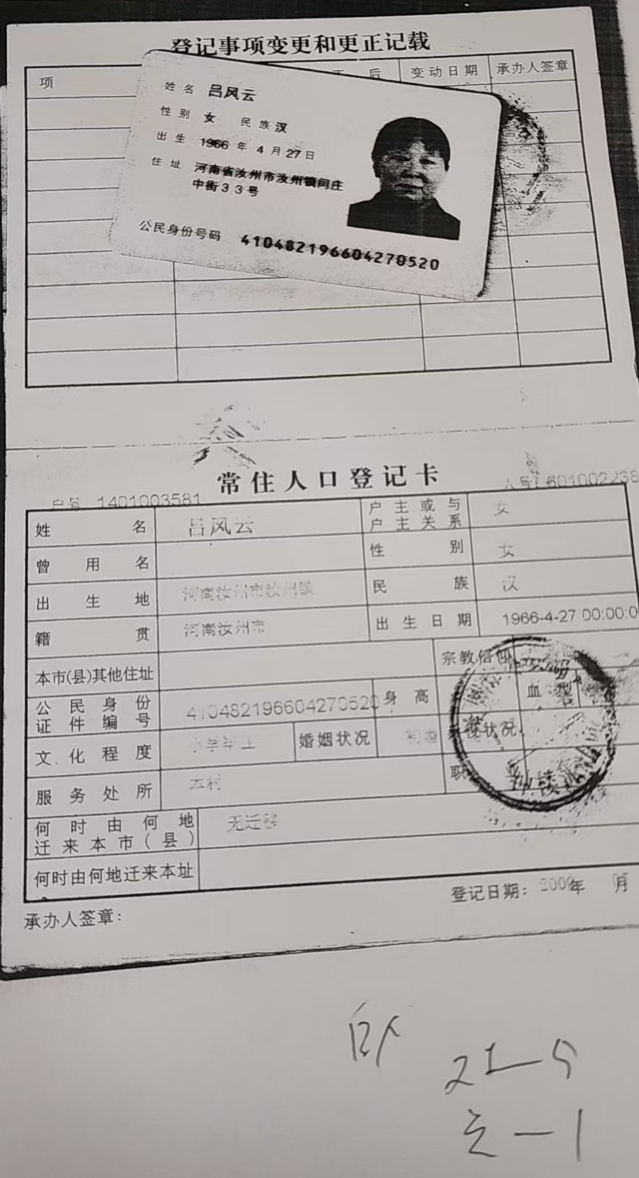 登记事项变更和更正记载
项 后 变动日期 承办人签章
姓名 吕风云
性别 女 民族 汉
出生 1966年4月27日
住址 河南省汝州市汝州镇闫庄
中街33号
公民身份号码 410482196604270520
常住人口登记卡
户号 1401003581
姓名 吕风云 户主或与户主关系 女
曾用名 性别 女
出生地 河南汝州市汝州镇 民族 汉
籍贯 河南汝州市 出生日期 1966-4-27 00:00:0
本市(县)其他住址 宗教信仰
公民身份证件编号 410482196604270520 身高 血型
文化程度 婚姻状况
服务处所 职
何时由何地迁来本市(县) 无迁移
何时由何地迁来本址
登记日期: 年 月
承办人签章: